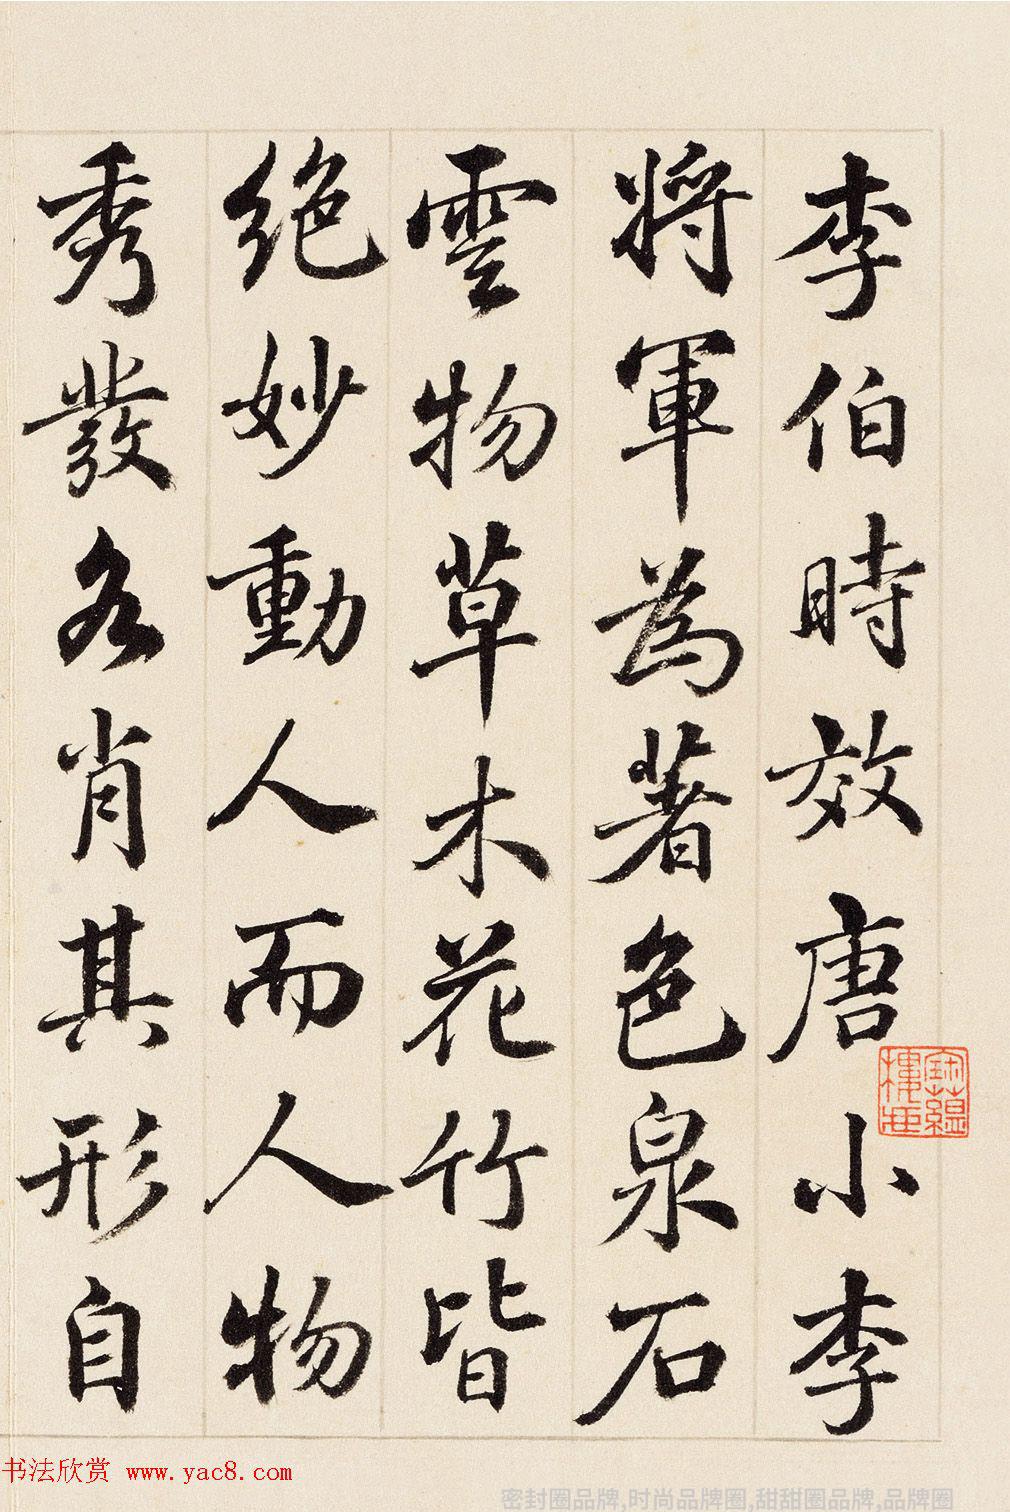 李伯時效唐小李
將軍為著色泉石
雲物草木花竹皆
絶妙動人而人物
秀發各肖其形自
书法欣赏 www.yac8.com
密封圈品牌,时尚品牌圈,甜甜圈品牌,品牌圈